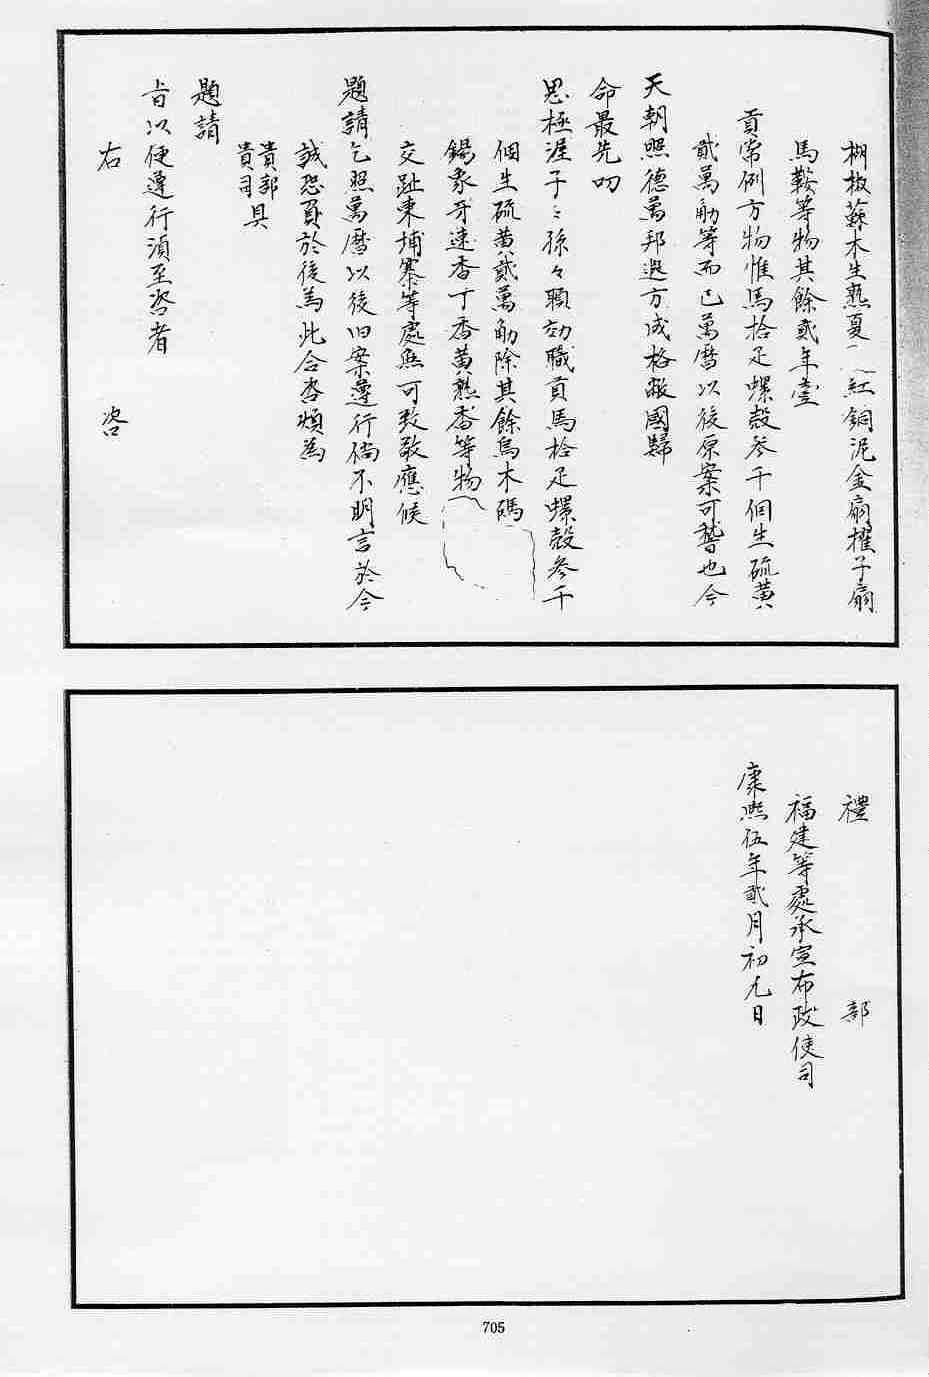 胡椒蘇木生熟夏紅銅泥金扇擢子扇
馬鞍等物其餘貳年壹
貢常例方物惟馬拾疋螺殼參千個生硫黃
貳萬觔等而已萬曆以後原案可    也今
天朝照德萬邦遐方咸格敝國歸
命最先叨
恩極渥子〻孫々願効職貢馬拾疋螺殼參千
個生硫黃貳萬觔除其餘烏木碼
錫象牙速香丁香黃熟香等物
交趾柬埔寨等處無可致敬應候
題請乞照萬曆以後旧案遵行倘不明言於今
誠恐負於後為此合咨煩為
貴部
貴司具
題請
旨以便遵行湏至咨者
右 咨
禮 部
福建等處承宣布政使司
康熙伍年貳月初九日
705